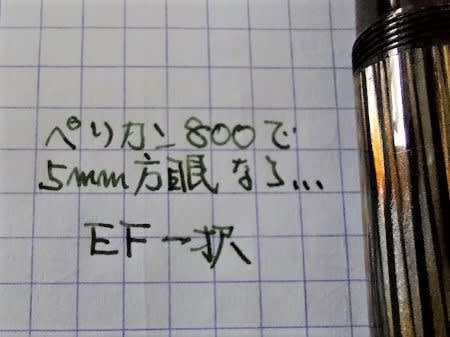 ペリカン800で
5mm方眼なら...
EF一択